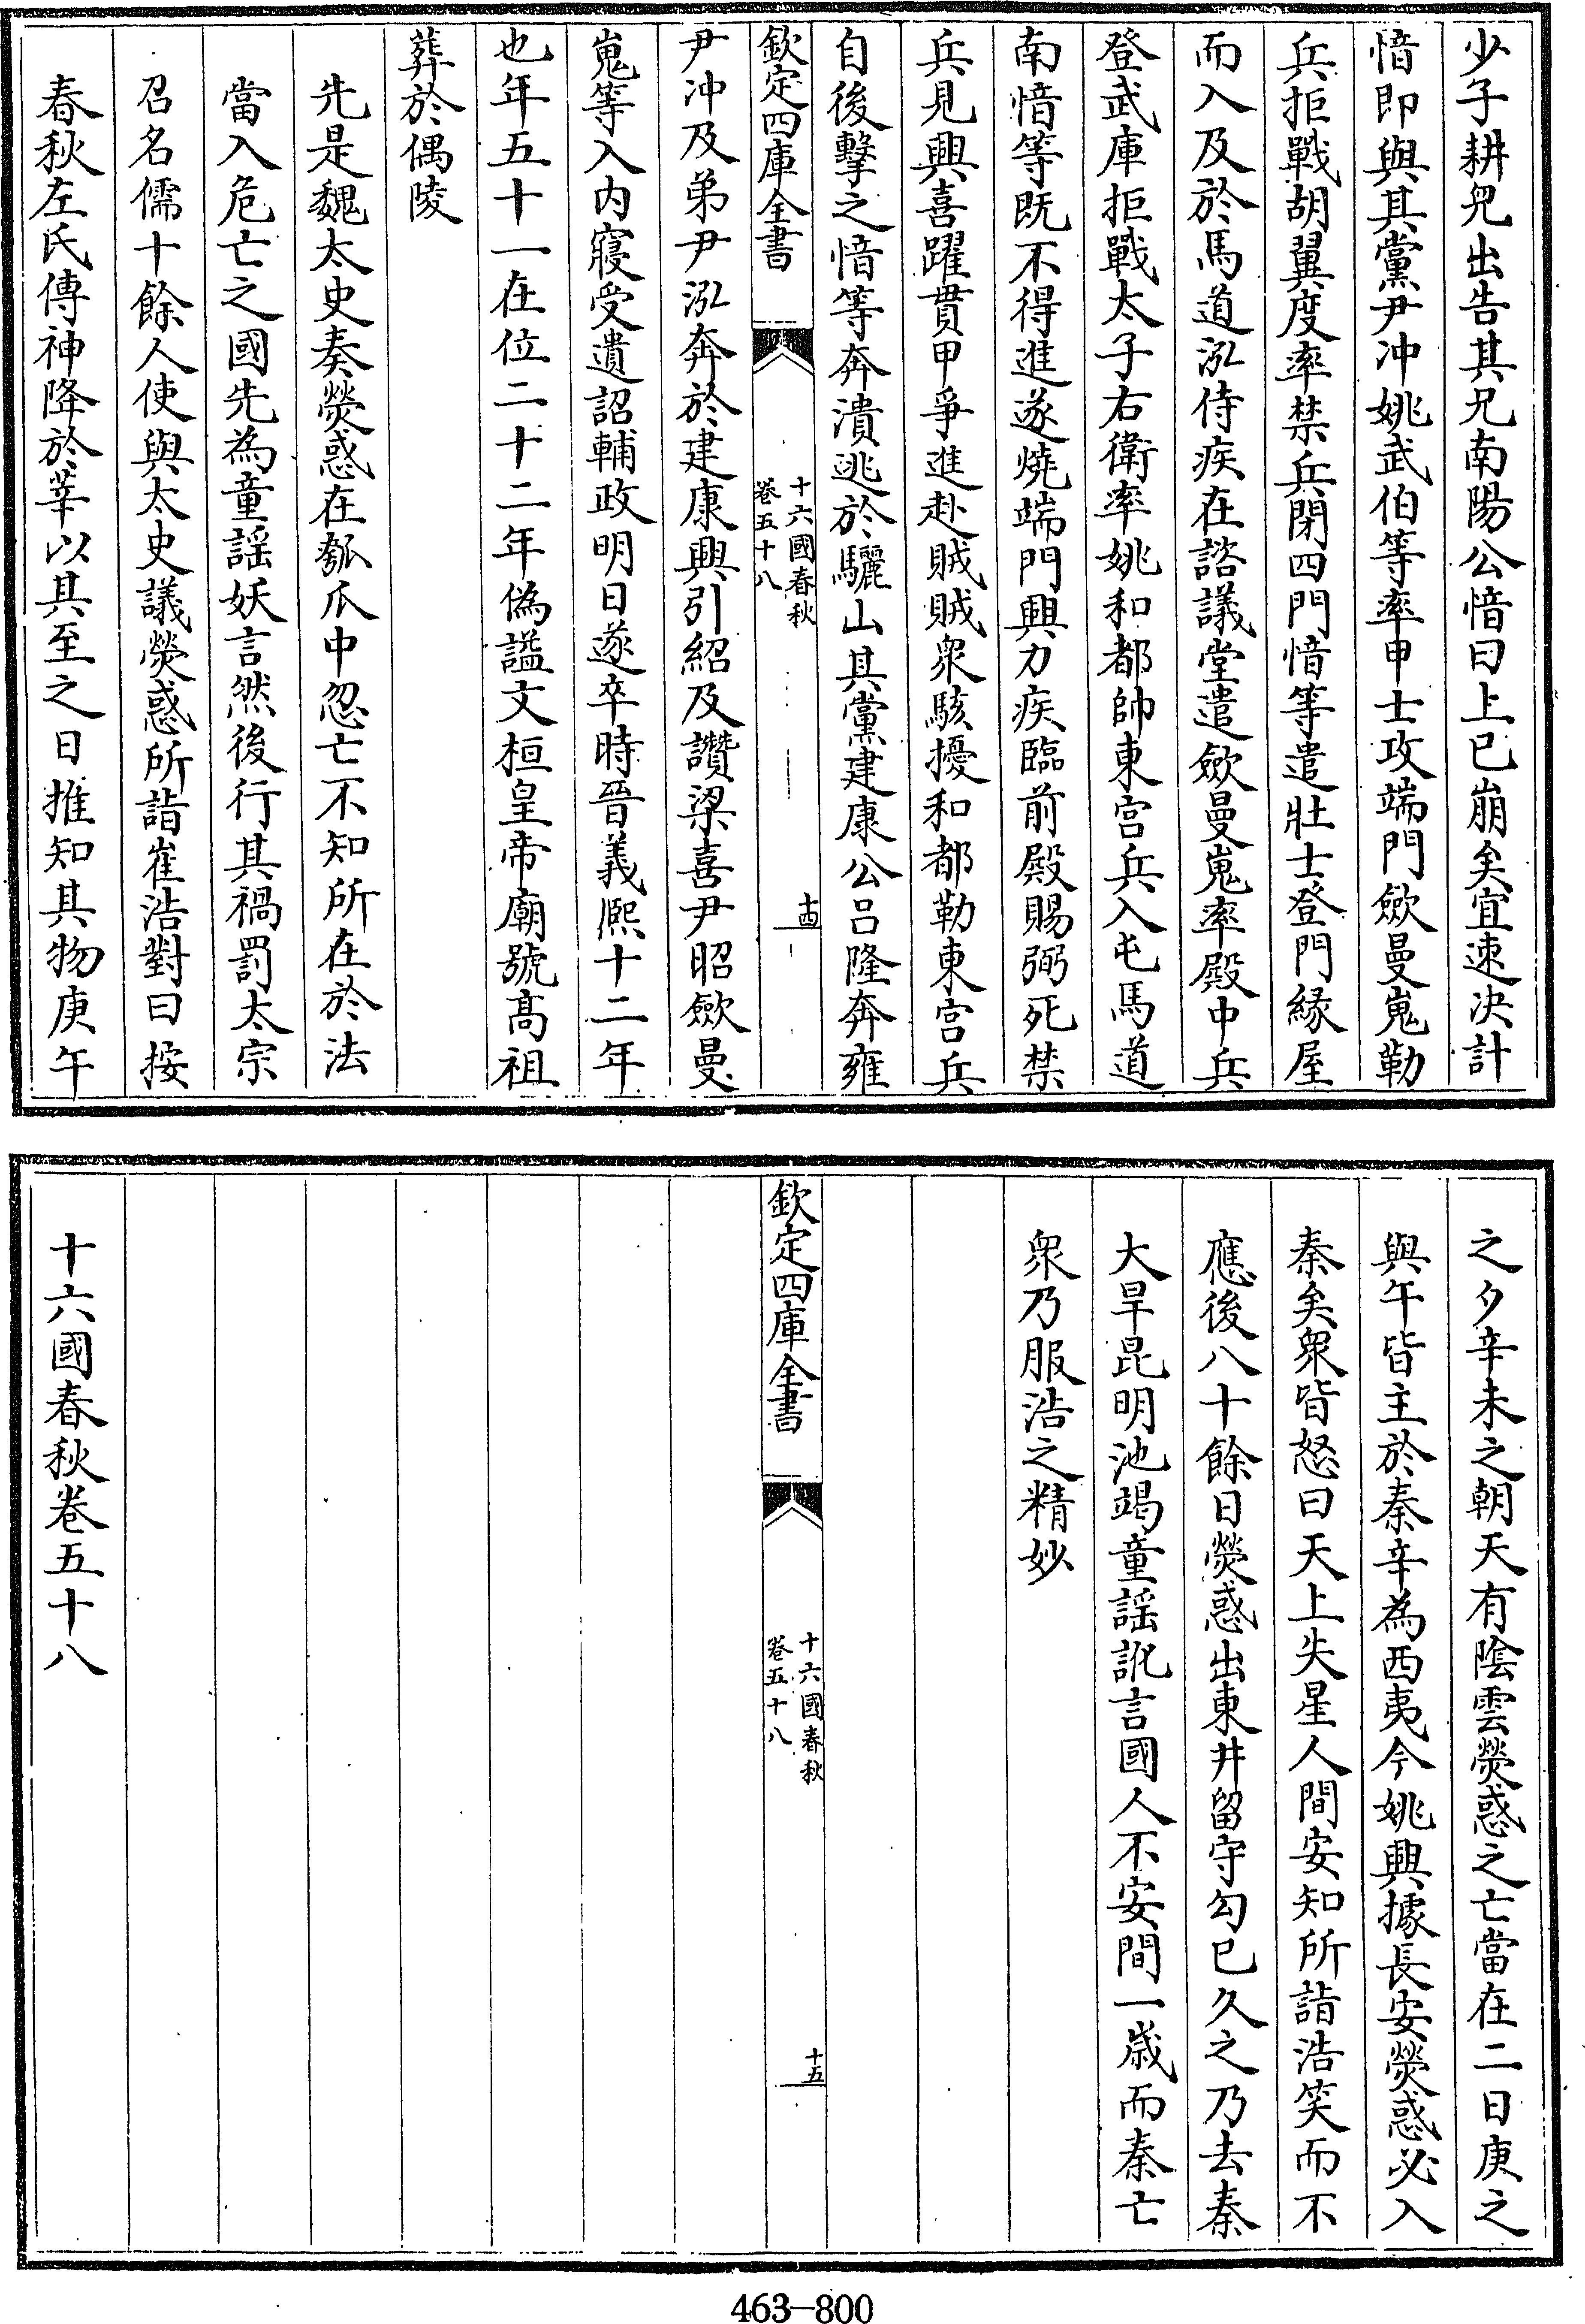 少子耕兒出告其兄南陽公愔曰上已崩矣宜速决計
愔即與其黨尹冲姚武伯等率甲士攻端門歛曼嵬勒
兵拒戰胡翼度率禁兵閉四門愔等遣壯士登門緣屋
而入及於馬道泓侍疾在諮議堂遣歛曼嵬率殿中兵
登武庫拒戰太子右衛率姚和都帥東宫兵入屯馬道
南愔等既不得進遂燒端門興力疾臨前殿賜弼死禁
兵見興喜躍貫甲爭進赴賊賊衆駭擾和都勒東宫兵
自後擊之愔等奔潰逃於驪山其黨建康公呂隆奔雍
欽定四庫全書
十六國春秋
卷五十八
十四
尹冲及弟尹泓奔於建康興引紹及讚梁喜尹昭歛曼
嵬等入内寢受遺詔輔政明日遂卒時晉義熙十二年
也年五十一在位二十二年偽謚文桓皇帝廟號髙祖
葬於偶陵
先是魏太史奏熒惑在瓠瓜中忽亡不知所在於法
當入危亡之國先為童謡妖言然後行其禍罰太宗
召名儒十餘人使與太史議熒惑所詣崔浩對曰按
春秋左氏傳神降於莘以其至之日推知其物庚午
之夕辛未之朝天有陰雲熒惑之亡當在二日庚之
與午皆主於秦辛為西夷今姚興據長安熒惑必入
秦矣衆皆怒曰天上失星人間安知所詣浩笑而不
應後八十餘日熒惑出東井留守勾已久之乃去秦
大旱昆明池竭童謡訛言國人不安間一歳而秦亡
衆乃服浩之精妙
欽定四庫全書
十六國春秋
卷五十八
十五
十六國春秋卷五十八
463-800